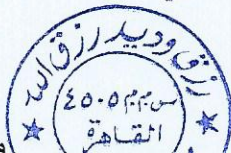 رزق وديد رزق الله
س.م.م ٤٥٠٥
القاهرة